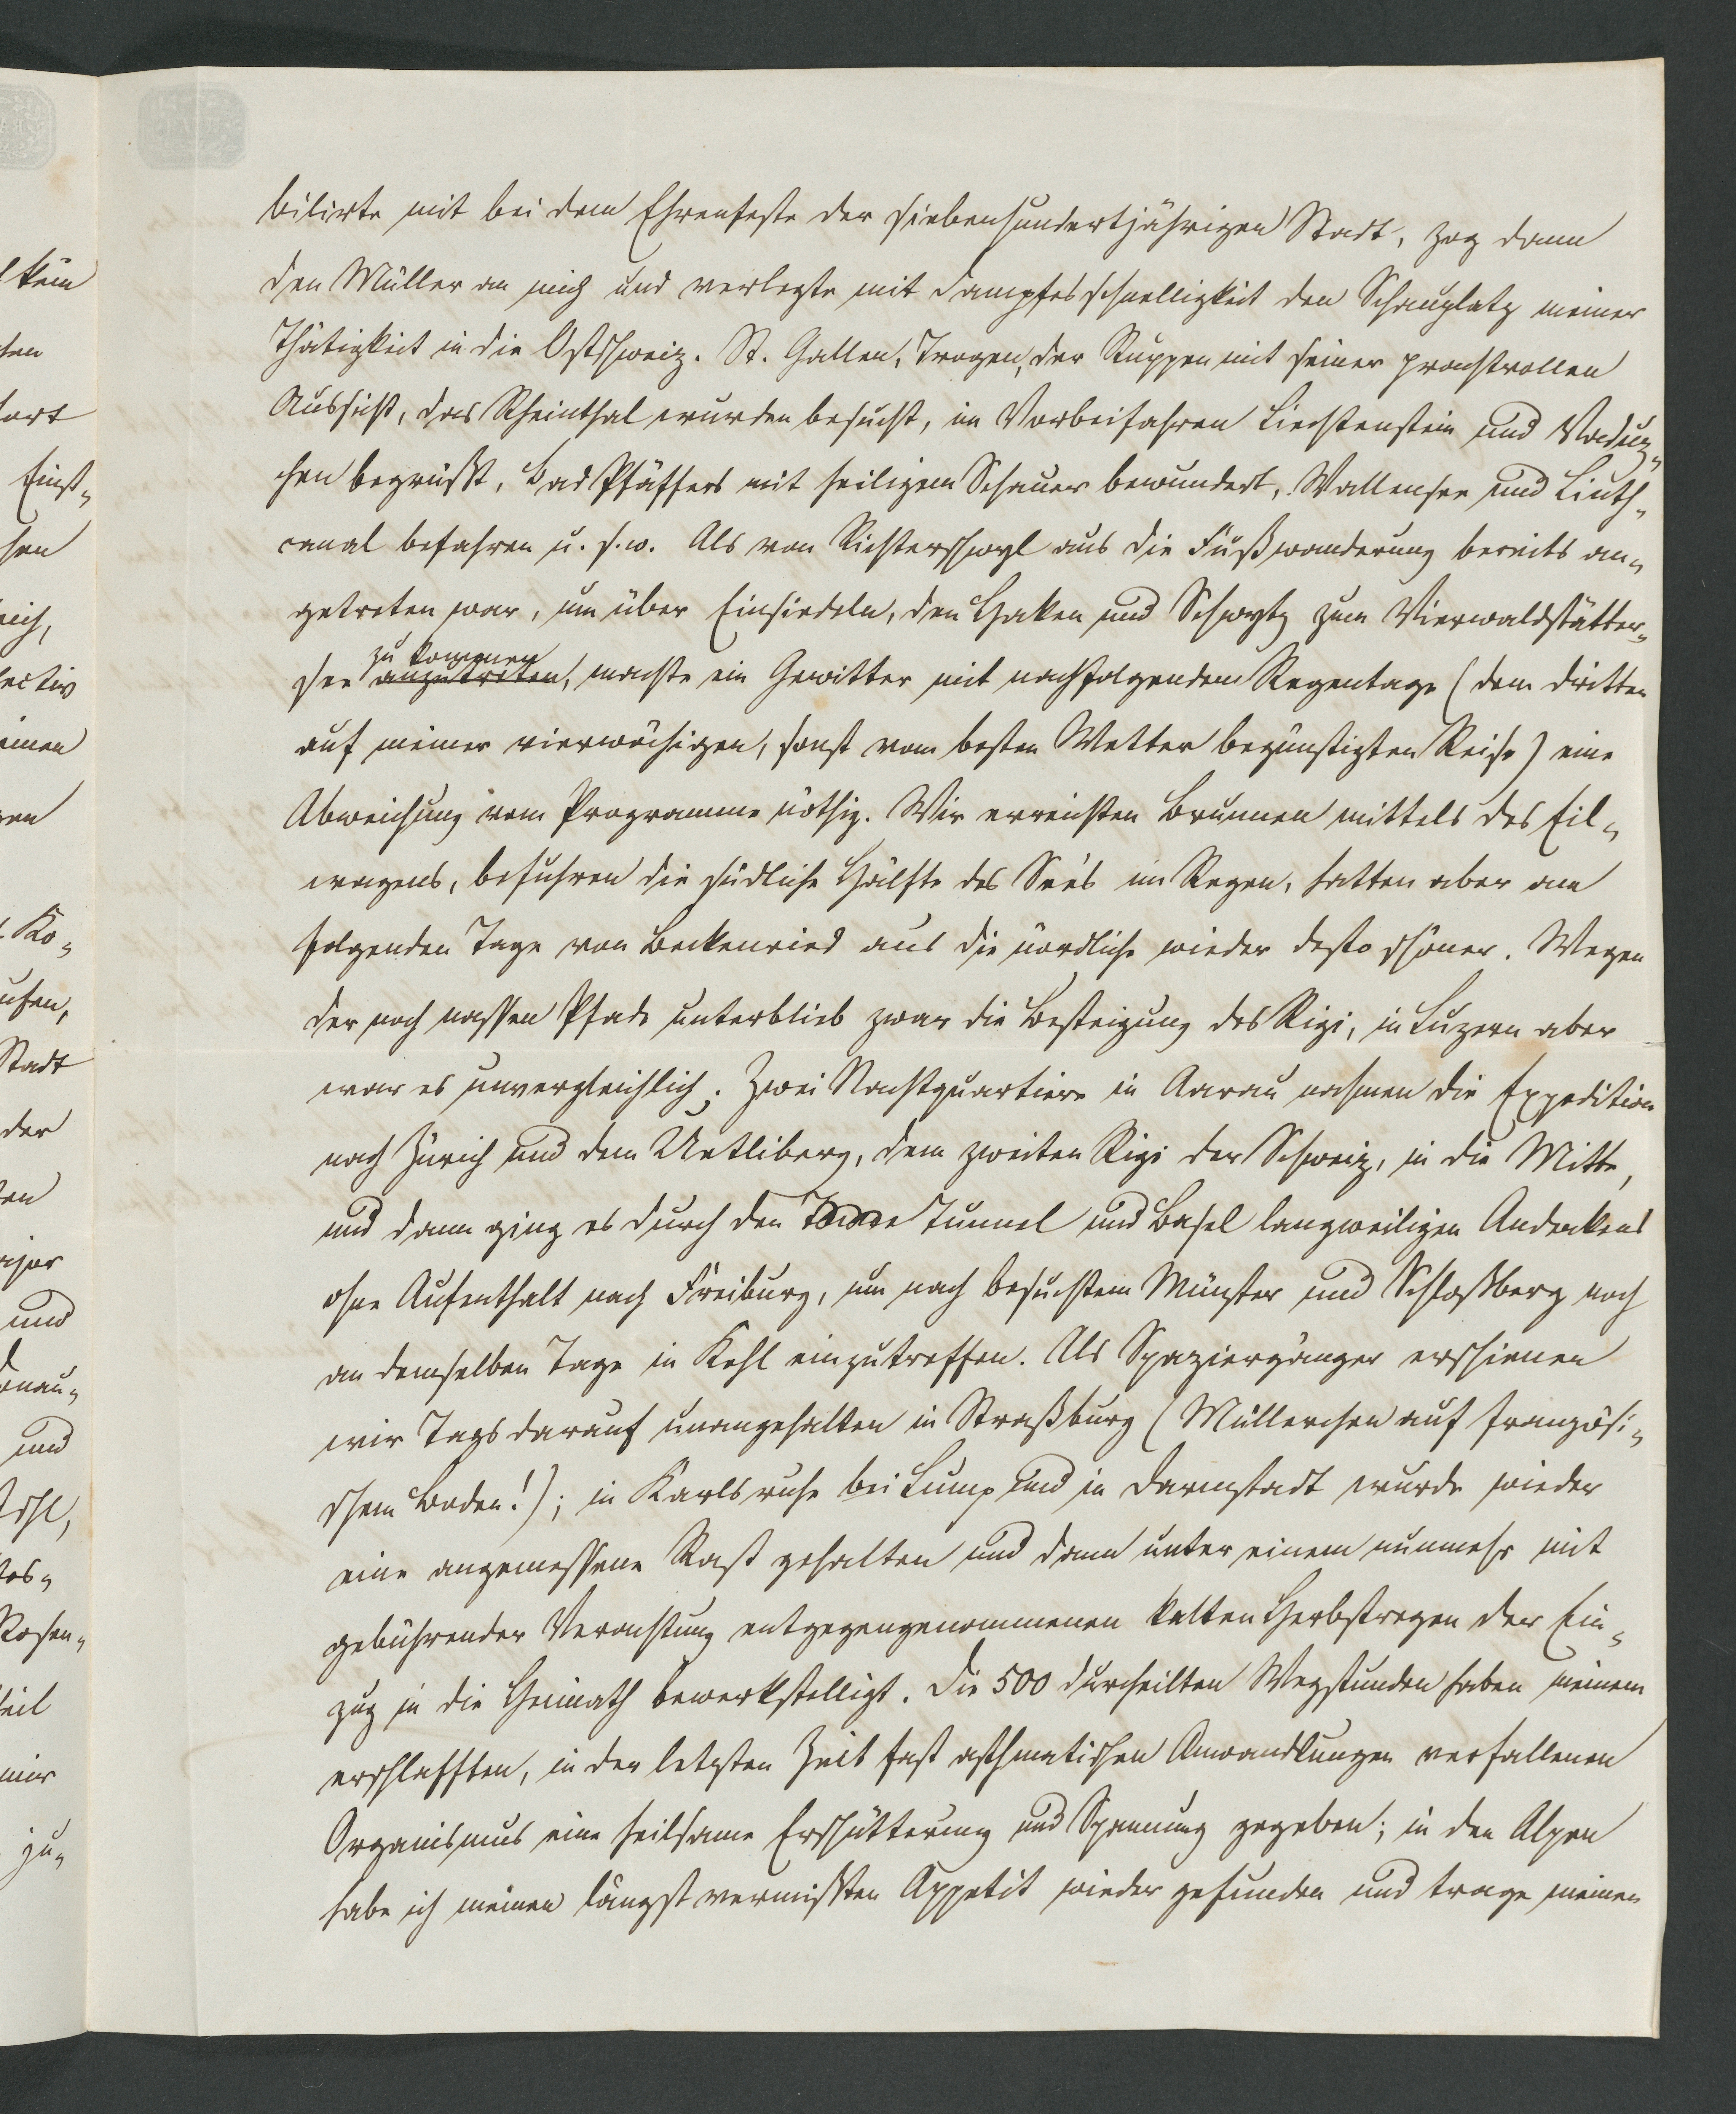 bilirte mit bei dem Ehrenfeste der siebenhundertjährigen Stadt, zog dann
den Müller an mich und verlegte mit Dampfesschnelligkeit den Schauplatz meiner
Thätigkeit in die Ostschweiz. St. Gallen, Trogen, der Ruppen mit seiner prachtvollen
Aussicht, das Rheinthal wurden besucht, im Vorbeifahren Liechtenstein und Vaduz-
chen begrüßt, Bad Pfäffers mit heiligem Schauer bewundert, Wallensee und Linth-
canal befahren u. s. w. Als von Richterschwyl aus die Fußwanderung bereits an-
getreten war, um über Einsiedeln, den Haken und Schwytz zum Vierwaldstätter-
zu kommen
see anzutreten, machte ein Gewitter mit nachfolgendem Regentage (dem dritten
auf meiner vierwöchigen, sonst vom besten Wetter begünstigten Reise) eine
Abweichung vom Programme nöthig. Wir erreichten Brunnen mittels des Eil-
wagens, befuhren die südliche Hälfte des See's im Regen, hatten aber am
folgenden Tage von Beckenried aus die nördliche wieder desto schöner. Wegen
der noch nassen Pfade unterblieb zwar die Besteigung des Rigi, in Luzern aber
war es unvergleichlich. Zwei Nachtquartiere in Aarau nahmen die Expedition
nach Zürich und dem Uetliberg, dem zweiten Rigi der Schweiz, in die Mitte,
und dann ging es durch den Tunnel und Basel langweiligen Andenkens
ohne Aufenthalt nach Freiburg, um nach besuchtem Münster und Schloßberg noch
an demselben Tage in Kehl einzutreffen. Als Spaziergänger erschienen
wir Tags darauf unangehalten in Straßburg (Müllerchen auf französi-
schem Boden!); in Karlsruhe bei Lump und in Darmstadt wurde wieder
eine angemessene Rast gehalten und dann unter einem nunmehr mit
gebührender Verachtung entgegengenommenen kalten Herbstregen der Ein-
zug in die Heimath bewerkstelligt. Die 500 durcheilten Wegstunden haben meinem
erschlafften, in der letzten Zeit fast asthmatischen Anwandlungen verfallenen
Organismus eine heilsame Erschütterung und Spannung gegeben; in den Alpen
habe ich meinen längst vermißten Appetit wieder gefunden und trage meinen